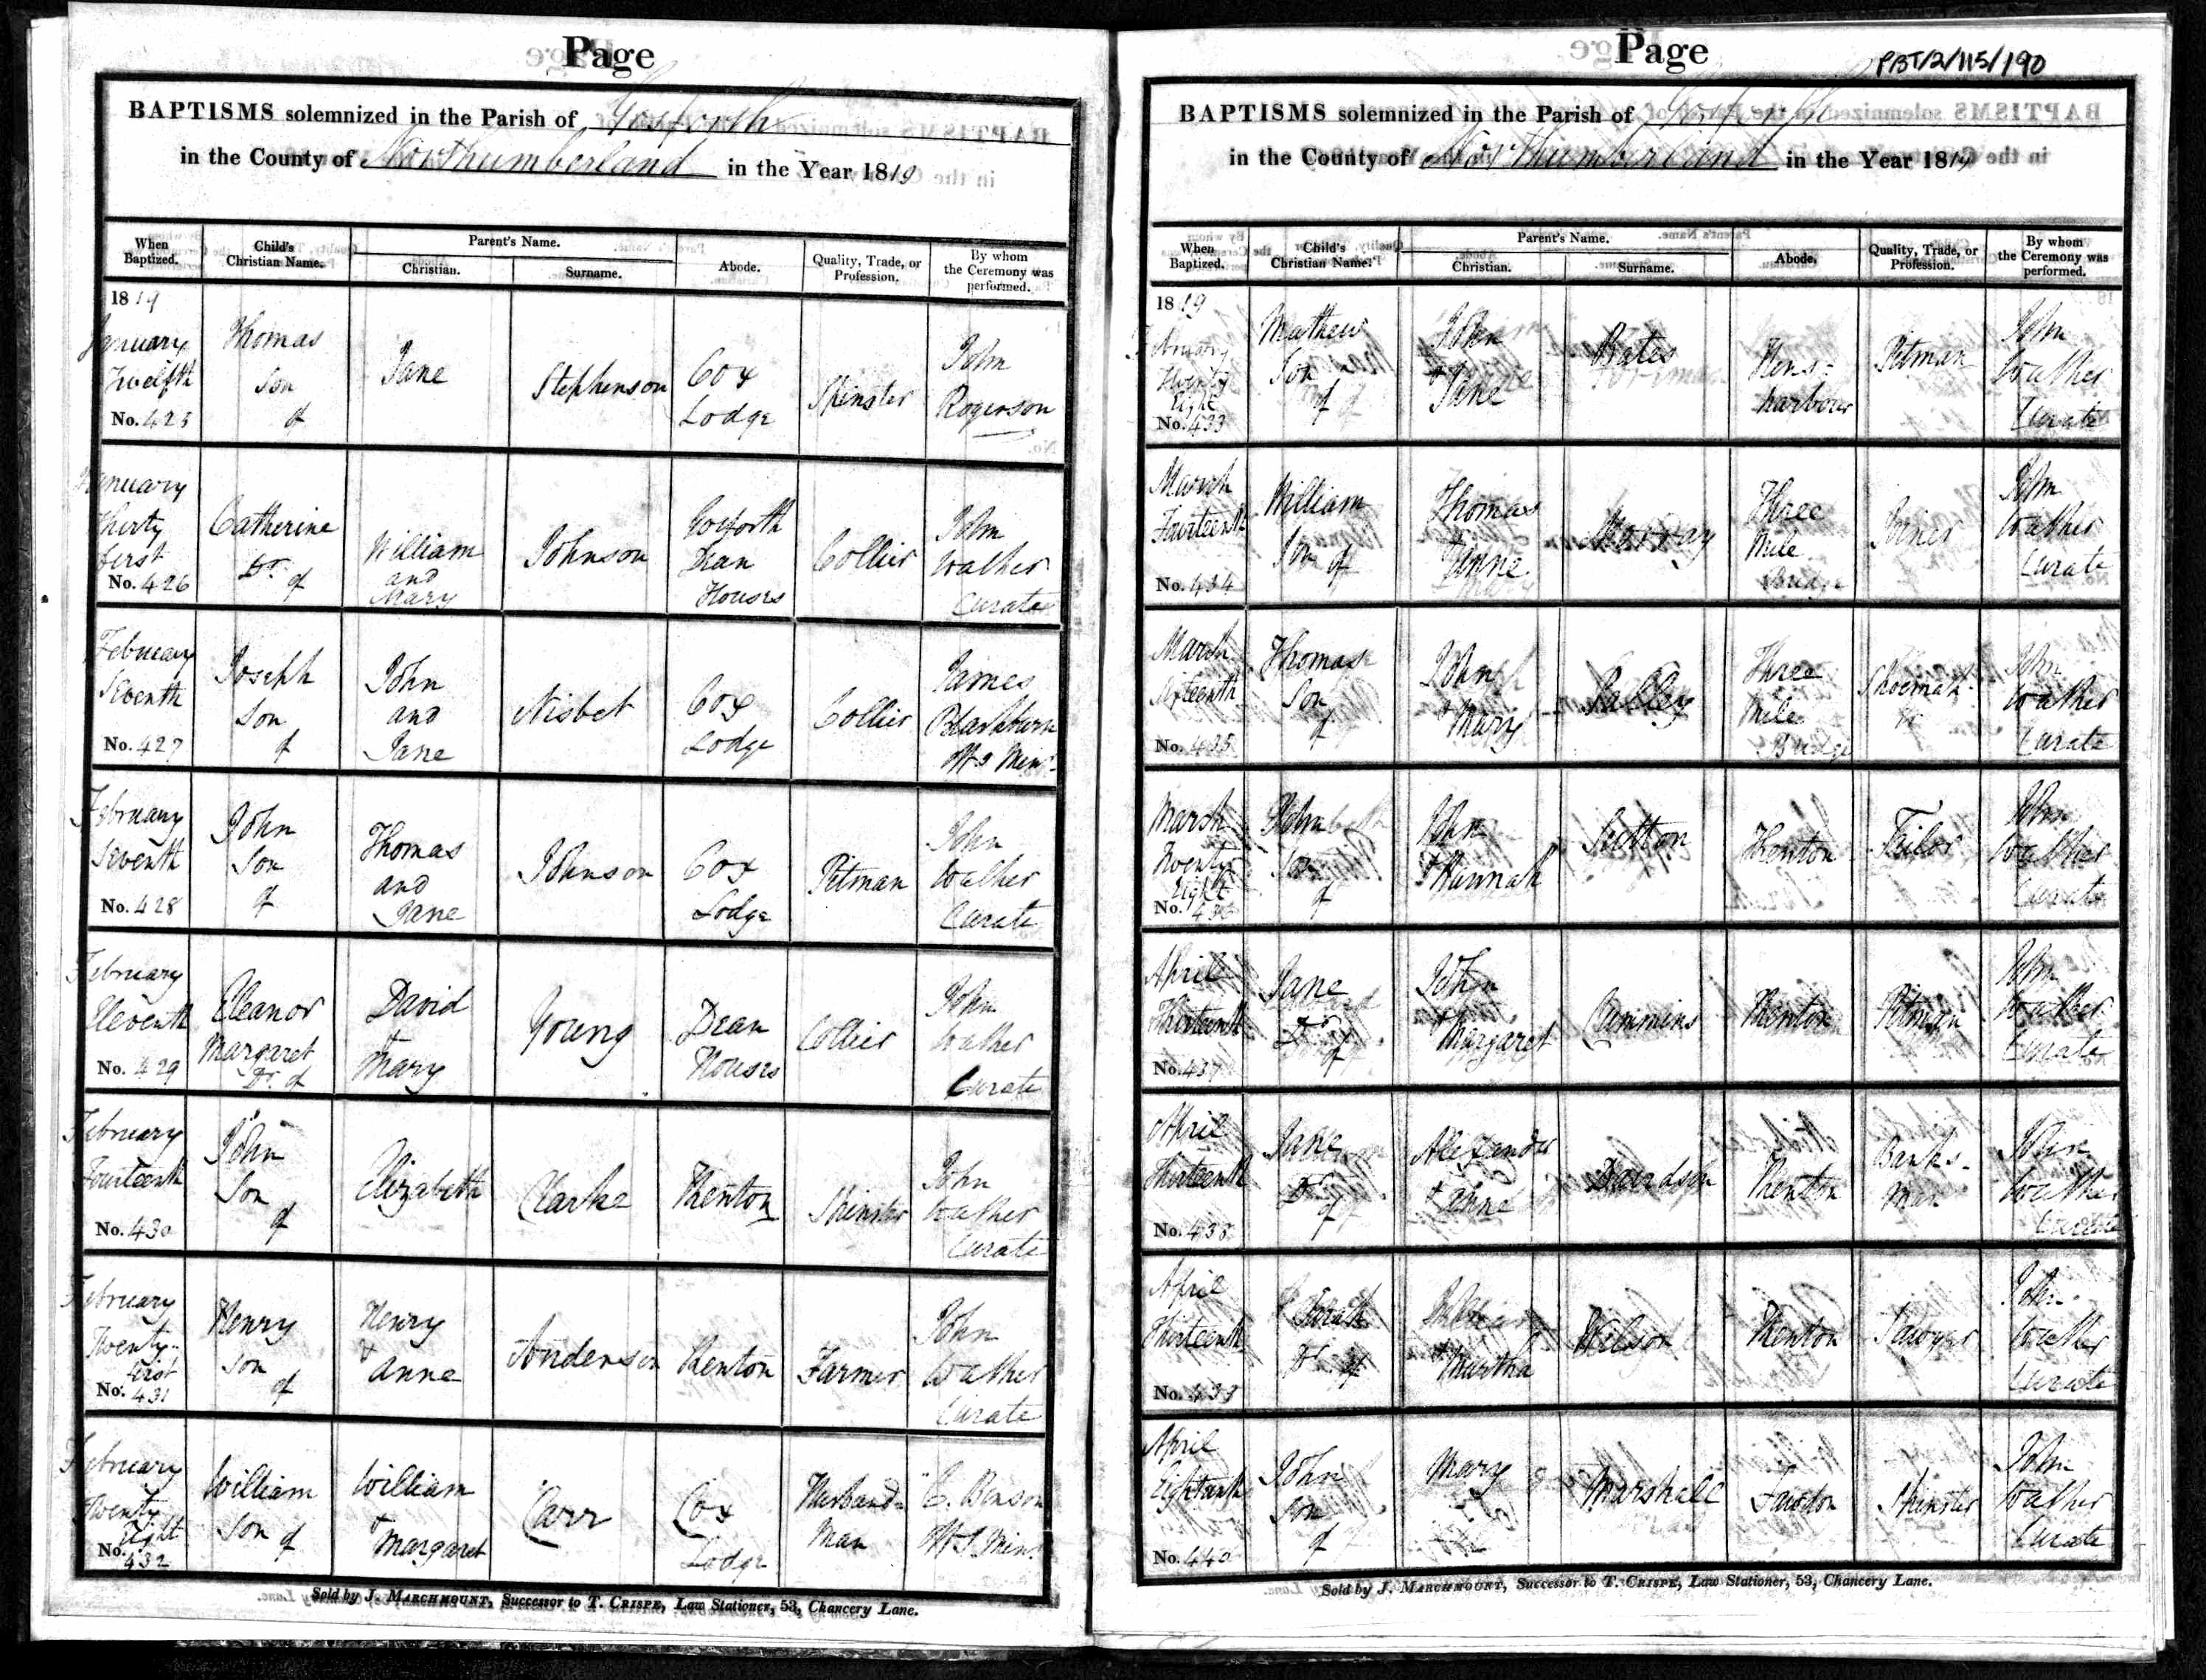 Page
BAPTISMS solemnized in the Parish of Gosforth
in the County of Northumberland in the Year 1819
When Baptized.
Child's Christian Name.
Parent's Name.
Christian.
Surname.
Abode.
Quality, Trade, or Profession.
By whom the Ceremony was performed.
1819
January
Twelfth
No. 425
Thomas
Son
of
Jane
Stephenson
Cox
Lodge
Spinster
John
Rogerson
January
thirty
first
No. 426
Catherine
Dr. of
William
and
Mary
Johnson
Gosforth
Dean
Houses
Collier
John
Walker
Curate
February
Seventh
No. 427
Joseph
Son
of
John
and
Jane
Nisbet
Cox
Lodge
Collier
James
Blackburn
Min.
February
Seventh
No. 428
John
Son
of
Thomas
and
Jane
Johnson
Cox
Lodge
Pitman
John
Walker
Curate
February
Eleventh
No. 429
Eleanor
Margaret
Dr. of
David
+
Mary
Young
Dean
Houses
Collier
John
Walker
Curate
February
Fourteenth
No. 430
John
Son
of
Elizabeth
Clarke
Kenton
Spinster
John
Walker
Curate
February
Twenty-
first
No. 431
Henry
Son
of
Henry
&
Anne
Anderson
Kenton
Farmer
John
Walker
Curate
February
Twenty
Eight
No. 432
William
Son of
William
+
Margaret
Carr
Cox
Lodge
Husband-
man
C. Benson
Min.
Sold by J. MARCHMOUNT, Successor to T. CRISPE, Law Stationer, 53, Chancery Lane.
Page
PBT/2/115/190
BAPTISMS solemnized in the Parish of Gosforth
in the County of Northumberland in the Year 1819
When Baptized.
Child's Christian Name.
Parent's Name.
Christian.
Surname.
Abode.
Quality, Trade, or Profession.
By whom the Ceremony was performed.
1819
February
Twenty
Eight
No. 433
Mathew
Son
of
John
+ Jane
Bates
Kens-
harbour
Pitman
John
Walker
Curate
March
Fourteenth
No. 434
William
Son of
Thomas
+ Anne
Murray
Three
Mile
Bridge
Joiner
John
Walker
Curate
March
No. 435
Thomas
Son
of
John
+ Mary
Three
Mile
Bridge
Shoemak-
er
John
Walker
Curate
March
Twenty
Eight
No. 436
John
Son
of
John
+ Hannah
Kenton
Tailor
John
Walker
Curate
April
Thirteenth
No. 437
Jane
Dr.
of
John
+
Margaret
Cummins
Kenton
Pitman
John
Walker
Curate
April
Thirteenth
No. 438
Jane
Dr.
of
Alexander
+ Anne
Davidson
Kenton
Banks-
man
John
Walker
Curate
April
Thirteenth
No. 439
Sarah
Dr. of
+ Martha
Wilson
Kenton
Sawyer
John
Walker
Curate
April
Eighteenth
No. 440
John
Son
of
Mary
Marshall
Fawdon
Spinster
John
Walker
Curate
Sold by J. MARCHMOUNT, Successor to T. CRISPE, Law Stationer, 53, Chancery Lane.